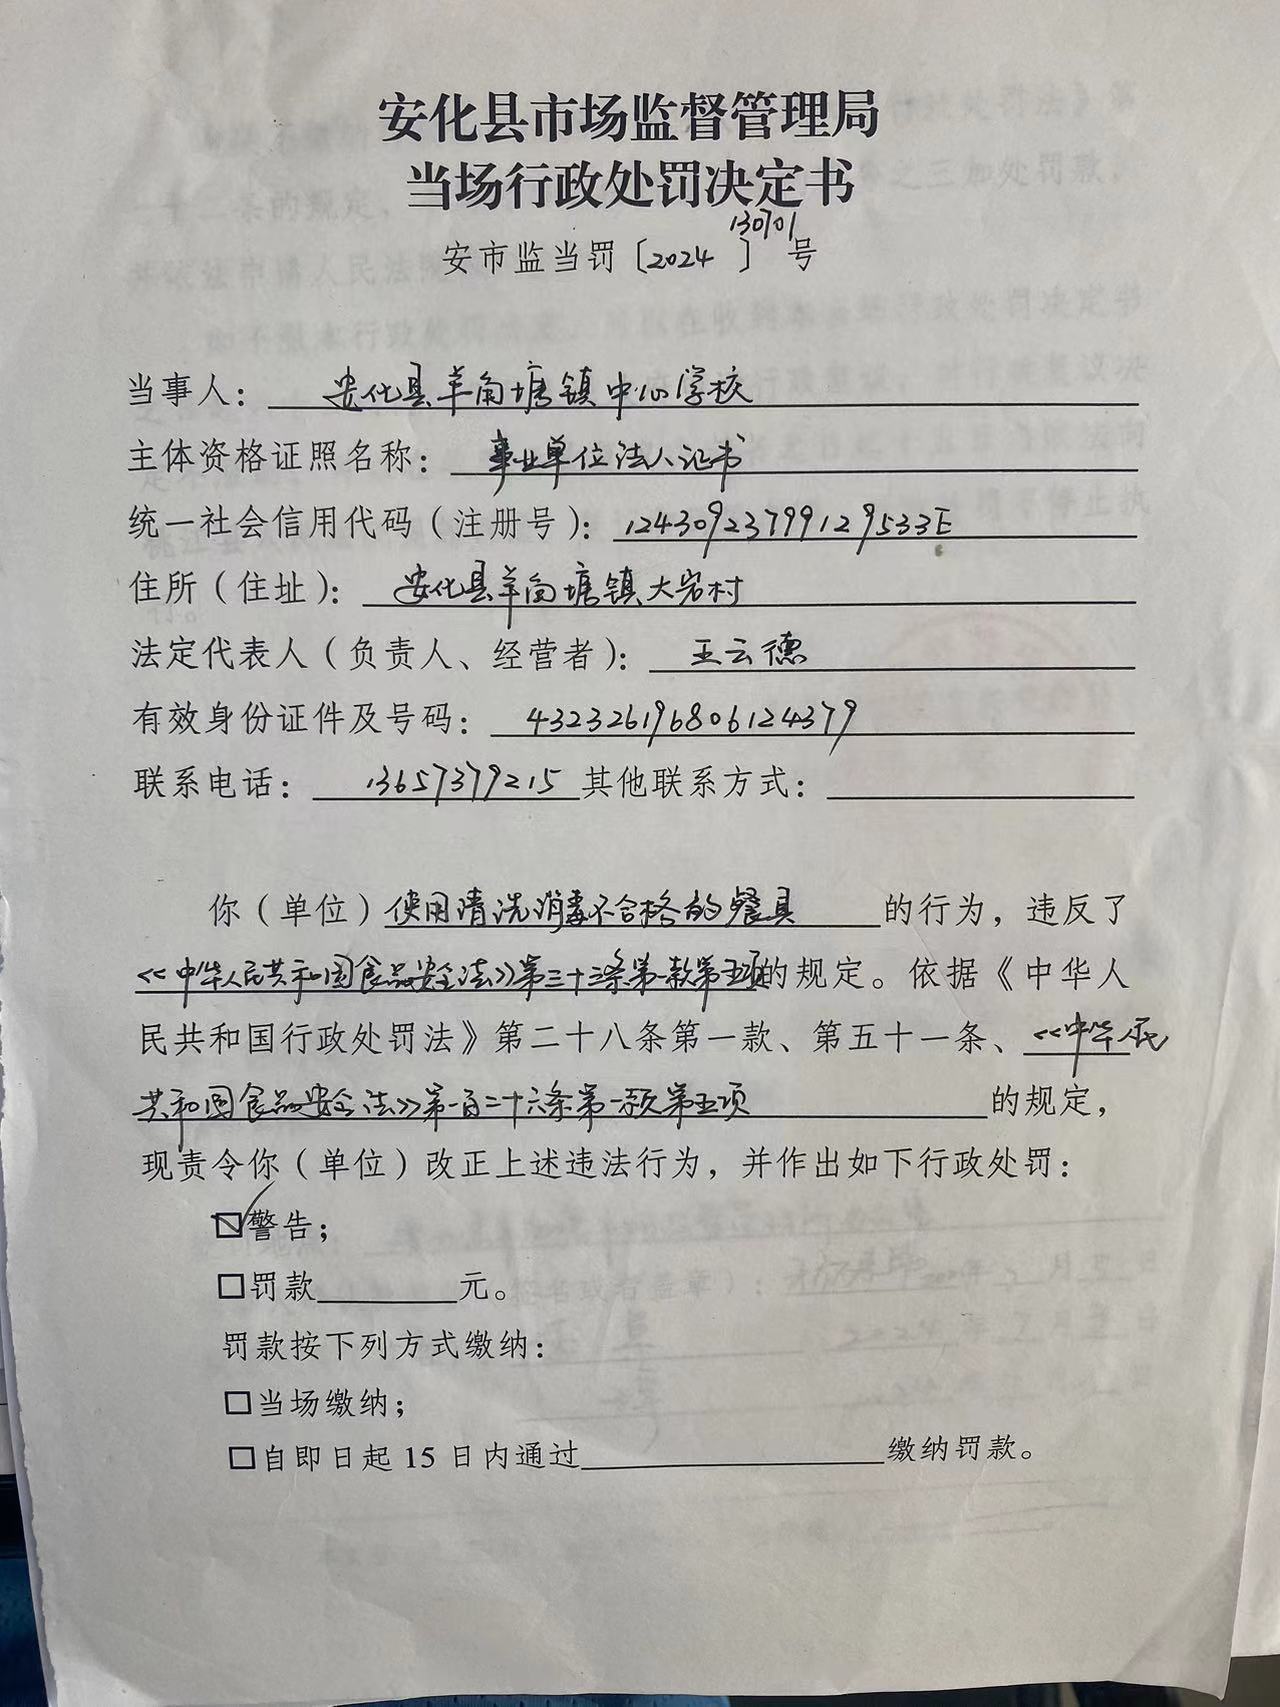 安化县市场监督管理局
当场行政处罚决定书
安市监当罚〔2024〕130701号
当事人：安化县羊角塘镇中心学校
主体资格证照名称：事业单位法人证书
统一社会信用代码（注册号）：12430923799129533E
住所（住址）：安化县羊角塘镇大岩村
法定代表人（负责人、经营者）：王云德
有效身份证件及号码：432326196806124379
联系电话：13657379215 其他联系方式：
你（单位）使用清洗消毒不合格的餐具的行为，违反了
《中华人民共和国食品安全法》第三十三条第一款第五项的规定。依据《中华人
民共和国行政处罚法》第二十八条第一款、第五十一条、《中华人民
共和国食品安全法》第一百二十六条第一款第五项的规定，
现责令你（单位）改正上述违法行为，并作出如下行政处罚：
☑警告；
□罚款______元。
罚款按下列方式缴纳：
□当场缴纳；
□自即日起 15 日内通过____________缴纳罚款。